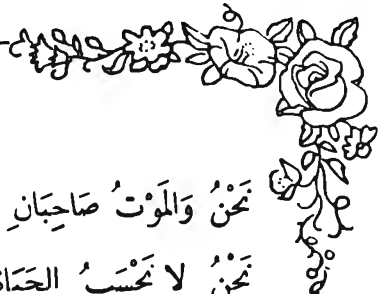 نَحْنُ وَالمَوْتُ صَاحِبَانِ
نَحْنُ لا نَحْسَبُ